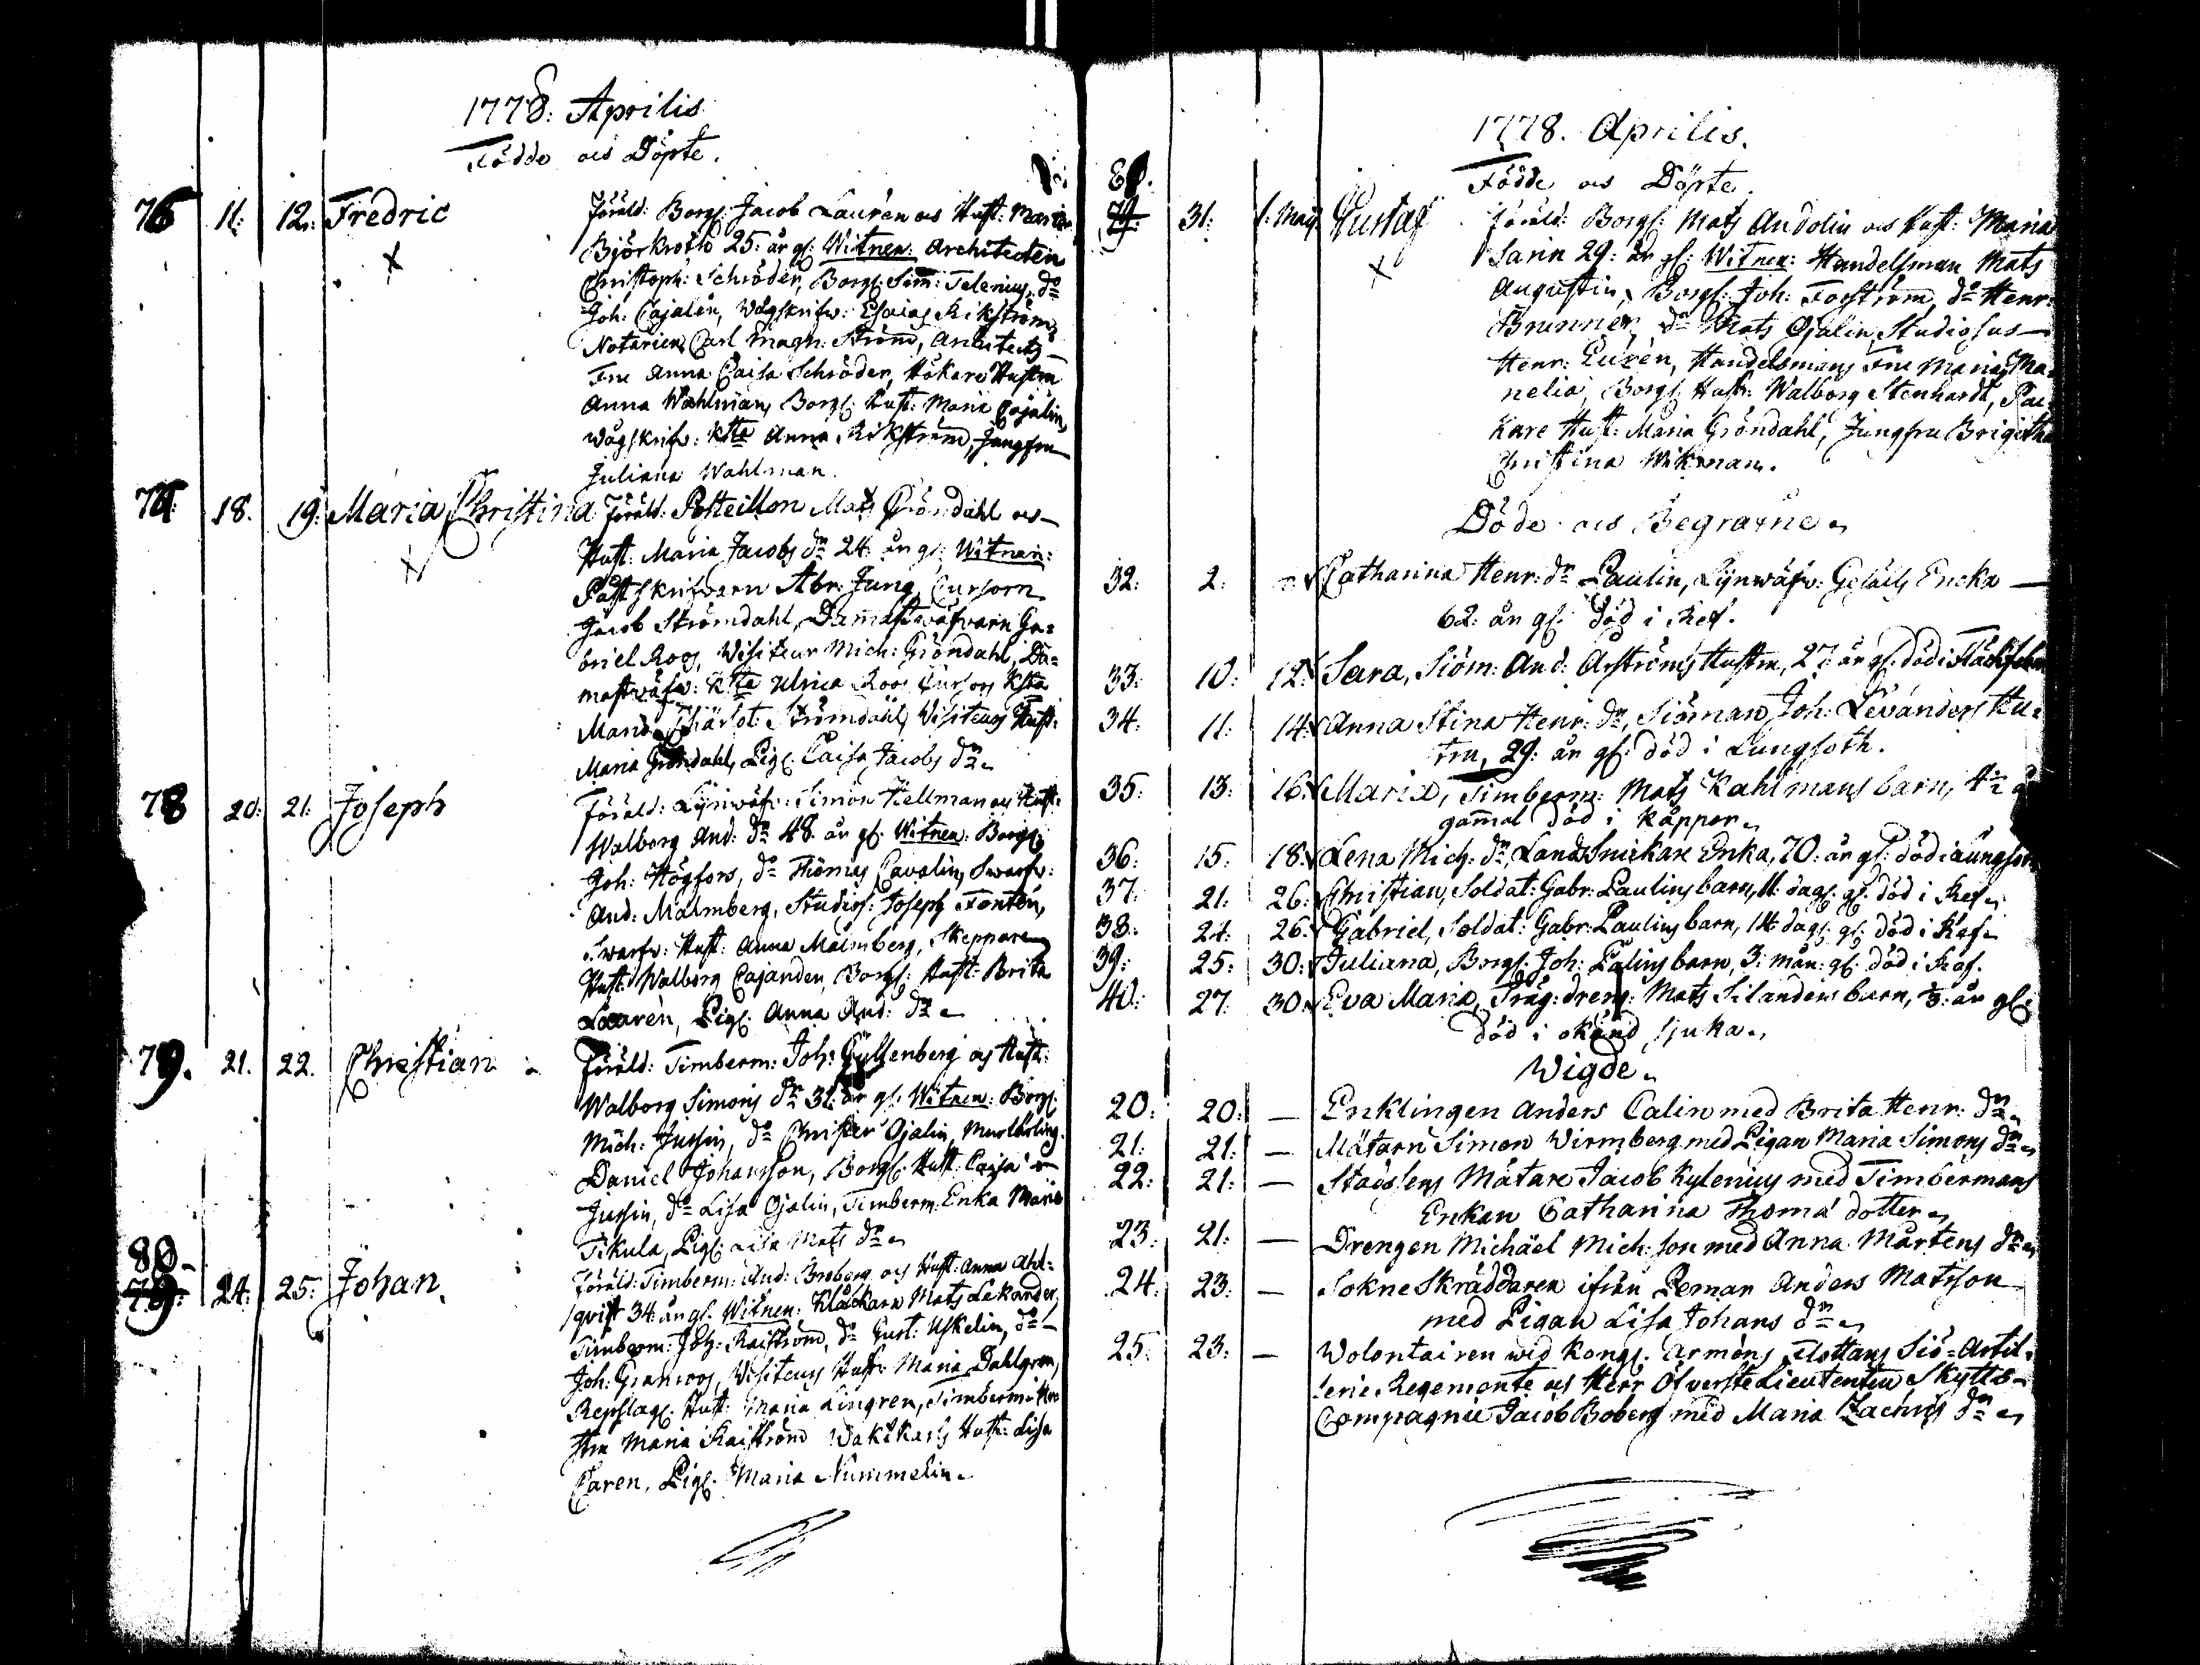 1778: Aprilis
Födde och Döpte.
76 11: 12: Fredric Föräld: Borg: Jacob Laurèn och Hust: Maria
Björkroth 25: år gl: Witnen: Architecten
Christoph: Schröder, Borg: Sim: Telenius, do
Joh: Cajalèn, Wågskrifw: Esaias Rikström,
Notarien Carl Magn: Ström, Architects
Fru Anna Caisa Schröder, Hökare Hustru
Anna Wahlman, Borg: Hust: Maria Cajalin,
Wågskrifw: Ktte Anna Rikström, Jungfru
Juliana Wahlman.
77: 18. 19: Maria Christina Föräld: Posteillon Mats Gröndahl och
Hust: Maria Jacobs dr 24: år gl: Witnen:
Postskrifvarn Abr: Jung, Cursorn
Jacob Strömdahl, Damastwäfvarn Ga=
briel Roos, Visiteur Mich: Gröndahl, Da=
mastwäfw: Ktte Ulrica Roos Cursors Ksta
Maria Charlot: Strömdahl, Visiteurs Hust:
Maria Gröndahl, Pig: Caisa Jacobs dr
78 20: 21: Joseph Föräld: Lijnwäfv: Simon Kellman och Hust:
Walborg And: dr 48. år gl: Witnen: Borg:
Joh: Högfors, do Thomas Cavalin, Swarfv:
And: Malmberg, Studios: Joseph Fontèn,
Swarfv: Hust: Anna Malmberg, Skeppare
Hust: Walborg Cajander, Borg: Hust: Brita
Laurèn, Pig: Anna And: dr
79. 21. 22. Christian Föräld: Timberm: Joh: Gyllenberg och Hust:
Walborg Simons dr 31: år gl: Witnen: Borg:
Mich: Jussin, do Christer Ojalin, Murlärling
Daniel Johansson, Borg: Hust: Caisa
Jussin, do Lisa Ojalin, Timberm: Enka Maria
Tikula, Pig: Lisa Mats dr
80.
79: 24: 25: Johan Föräld: Timberm: And: Broberg och Hust: Anna Ahl=
qvist 34: år gl: Witnen: Klåckarn Mats Lekander,
Timberm: Joh: Raiström, do Gust: Uskelin, do
Joh: Granroos, Visiteurs Hust: Maria Dahlgren,
Repslag: Hust: Maria Lingren, Timberm: Hu
stru Maria Raiström Waktkarls Hust: Lisa
Caren, Pig: Maria Nummelin.
1778. Aprilis.
Födde och Döpte.
81.
79: 31: 1. Maij Gustaf Föräld: Borg: Mats Andolin och Hust: Maria
Sarin 29: år gl: Witnen: Handelsman Mats
Augustin, Borg: Joh: Forström, do Henr:
Brunner, do Mats Ojalin, Studiosus
Henr: Eurèn, Handelsmans Fru Maria Ma=
nelia, Borg: Hust: Walborg Stenhardt, Pac=
kare Hust: Maria Gröndahl, Jungfru Brigitha
Christina Wikman.
Döde och Begrafne
32: 2: Catharina Henr: dr Paulin, Lijnwäfv: Gesälls Encka
62: år gl: död i Ref.
33: 10: 12: Sara, Siöm: And: Arströms Hustru, 27: år gl: död i
34: 11: 14: Anna Stina Henr: dr, Siöman Joh: Levanders Hu=
tru, 29: år gl: död i Lungsoth.
35: 13: 16: Maria, Timberm: Mats Kahlmans barn, 4½ å
gammal död i kåppor
36: 15: 18: Lena Mich: dr, Landssnickare Enka, 70: år gl: död i Lungsot
37: 21: 26: Christian, Soldat: Gabr: Paulins barn, 11: dag: gl: död i Ref
38: 24: 26: Gabriel, Soldat: Gabr: Paulins barn, 14: dag: gl: död i Ref
39: 25: 30: Juliana, Borg: Joh: Palins barn, 3: mån: gl: död i Ref.
40: 27: 30: Eva Maria, Träg: dreng: Mats Silanders barn, år gl:
död i okänd sjuka
Wigde
20: 20: — Enklingen Anders Calin med Brita Henr: dr
21: 21: — Mätarn Simon Wirmberg med Pigan Maria Simons dr
22: 21: — Stadsens Mätare Jacob Kylenius med Timbermans
Enkan Catharina Thomä dotter
23: 21: — Drengen Michäel Mich: son med Anna Mårtens dr
24: 23: — Sokne Skräddaren ifrån Pemar Anders Matsson
med Pigan Lisa Johans dr
25: 23: — Wolontairen wid Kongl: Armèns Flottans Siö=Artil=
lerie Regemente och Herr Öfverste Lieutenten Skytts
Compagnie Jacob Boberg med Maria Zachris dr